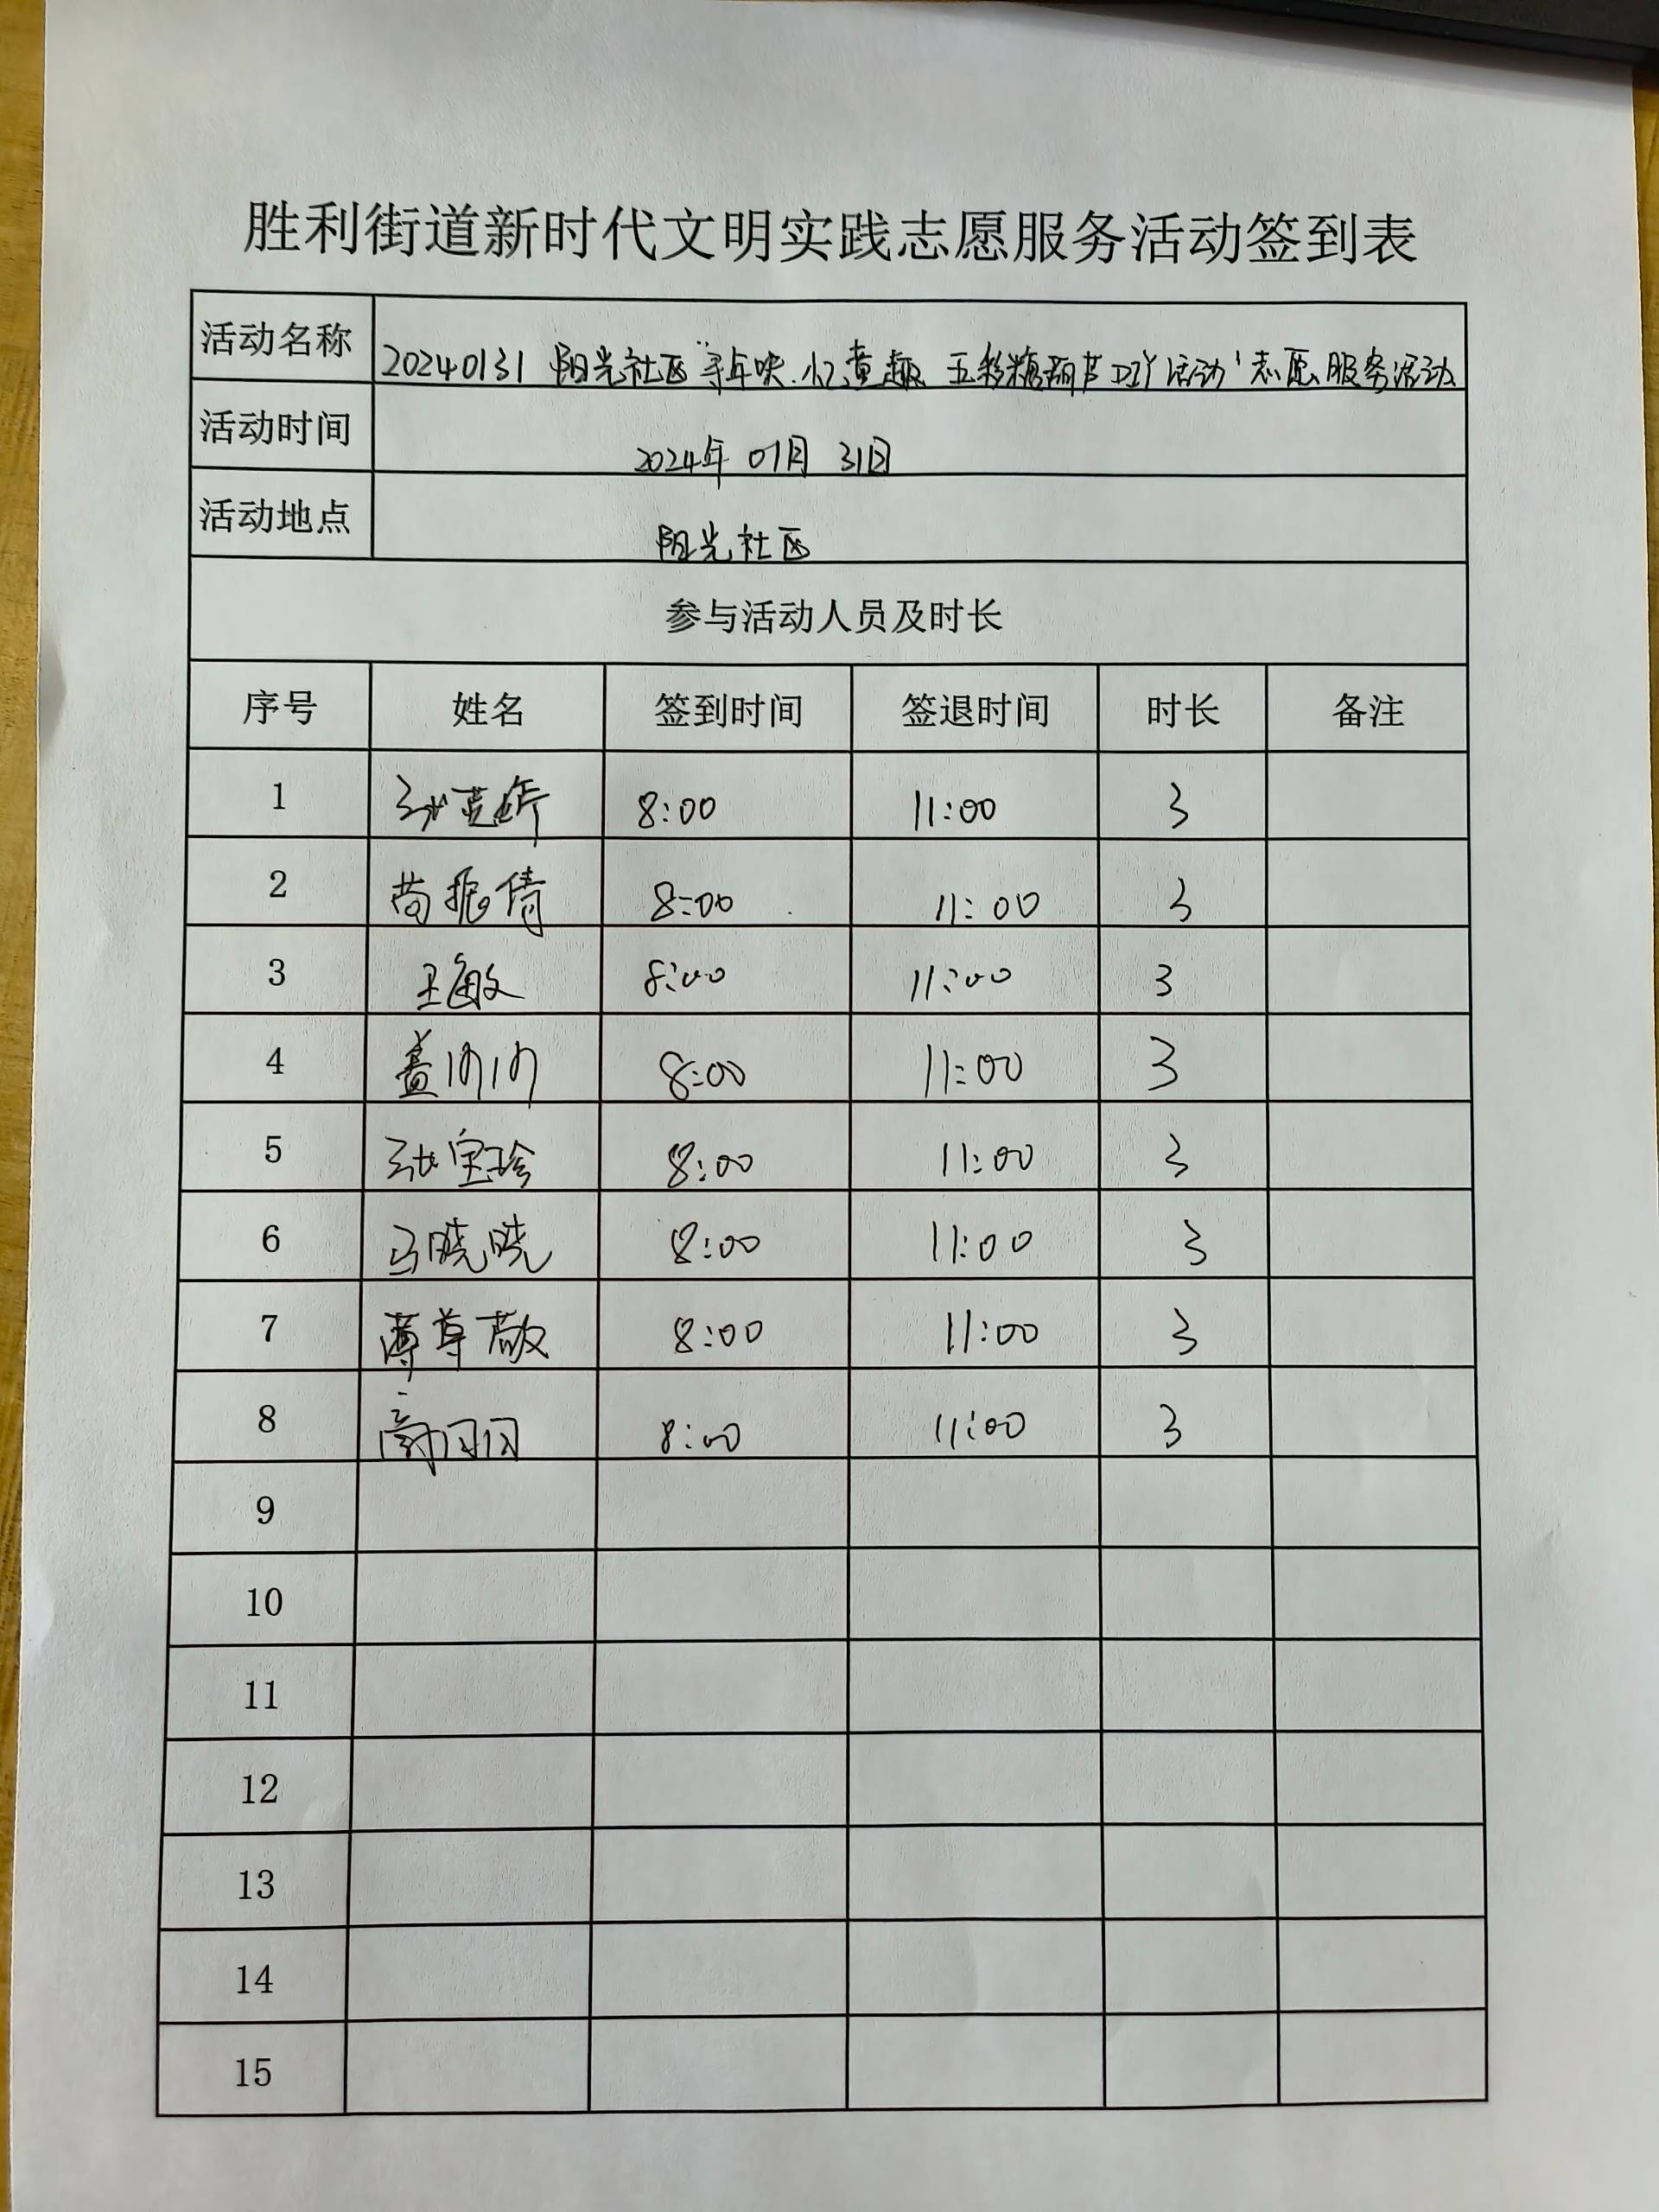 胜利街道新时代文明实践志愿服务活动签到表
活动名称 20240131 阳光社区“寻年味.忆童趣 五彩糖葫芦DIY活动”志愿服务活动
活动时间 2024年 01月 31日
活动地点 阳光社区
参与活动人员及时长
序号 姓名 签到时间 签退时间 时长 备注
1 8:00 11:00 3
2 苟振倩 8:00 11:00 3
3 王敏 8:00 11:00 3
4 8:00 11:00 3
5 张宝珍 8:00 11:00 3
6 马晓晓 8:00 11:00 3
7 薄尊敬 8:00 11:00 3
8 8:00 11:00 3
9
10
11
12
13
14
15